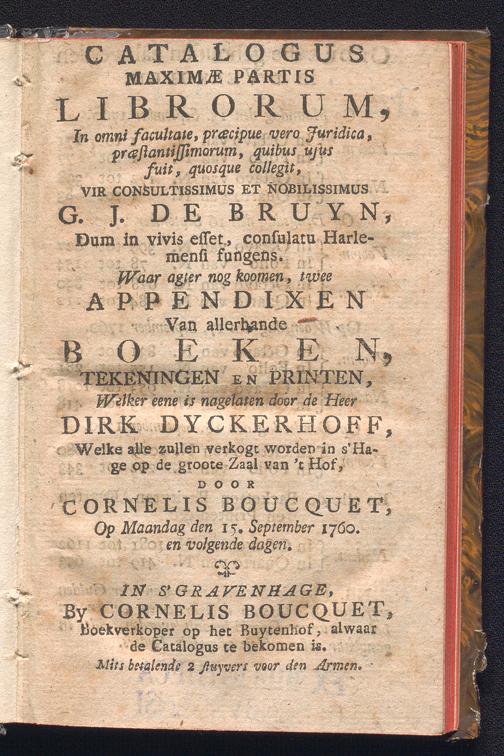 CATALOGUS
MAXIMÆ PARTIS
LIBRORUM,
In omni facultate, præcipue vero Juridica,
præſtantiſſimorum, quibus uſus
fuit, quosque collegit,
VIR CONSULTISSIMUS ET NOBILISSIMUS
G. J. DE BRUYN,
Dum in vivis eſſet, conſulatu Harle-
menſi fungens.
Waar agter nog koomen, twee
APPENDIXEN
Van allerhande
BOEKEN,
TEKENINGEN EN PRINTEN,
Welker eene is nagelaten door de Heer
DIRK DYCKERHOFF,
Welke alle zullen verkogt worden in s'Ha-
ge op de groote Zaal van 't Hof,
DOOR
CORNELIS BOUCQUET,
Op Maandag den 15. September 1760.
en volgende dagen.
IN S'GRAVENHAGE,
By CORNELIS BOUCQUET,
Boekverkoper op het Buytenhof, alwaar
de Catalogus te bekomen is.
Mits betalende 2 ſtuyvers voor den Armen.